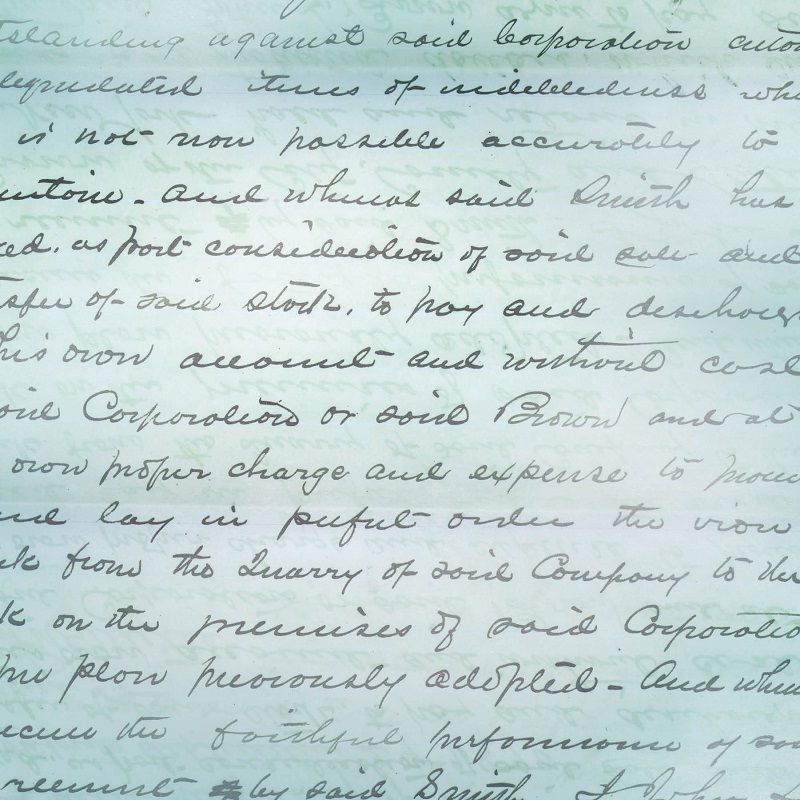 tstanding against said Corporation
items of indebtedness
is not now possible accurately to
and whereas said Smith has
as part consideration of said sale and
sfer of said stock, to pay and discharg
his own account and without cost
aid Corporation or said Brown and at
own proper charge and expense to
nd lay in perfect order the iron
from the Quarry of said Company to the
k on the premises of said Corporatio
me plan previously adopted - And whe
ecure the faithful performance of sa
reement by said Smith, I John